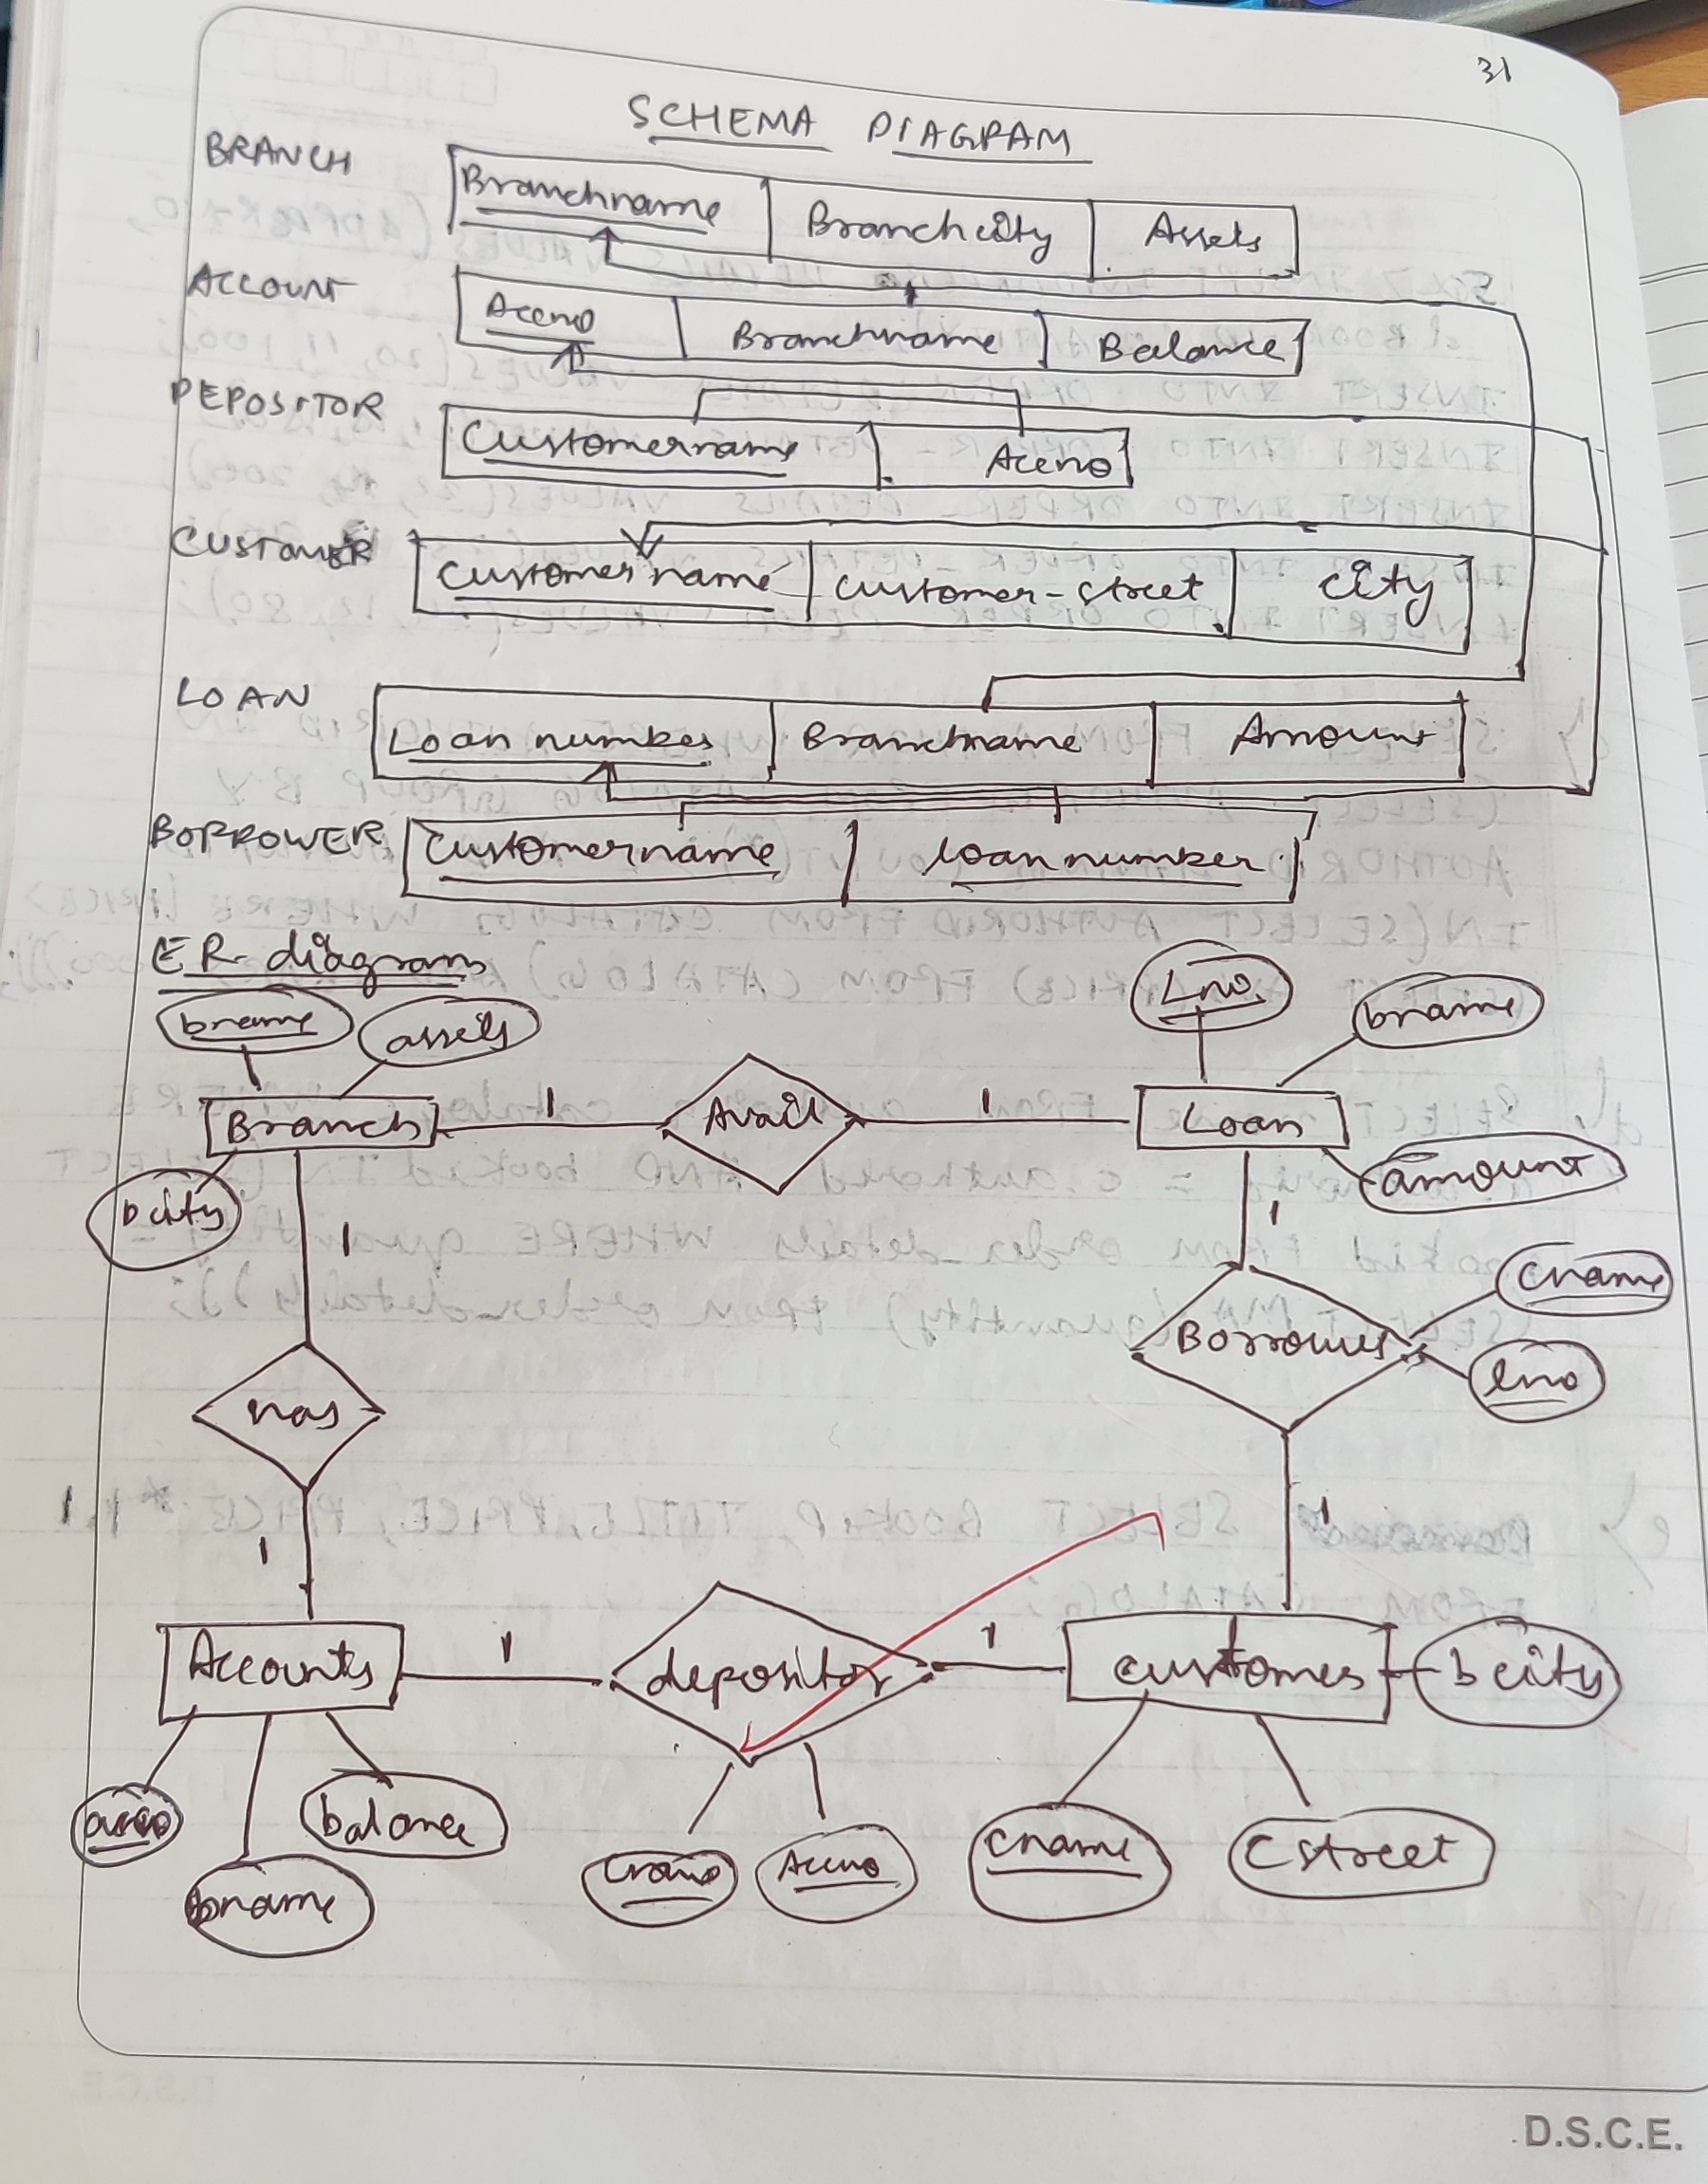 31
SCHEMA DIAGRAM
BRANCH
Branchname Branchcity Assets
ACCOUNT
Accno Branchname Balance
DEPOSITOR
Customername Accno
CUSTOMER
Customername Customer-street City
LOAN
Loan number Branchname Amount
BORROWER
Customername loan number
ER-diagram
bname assets Lno bname
Branch 1 Avail 1 Loan
bcity amount
1 1
cname
Borrower
lno
has
1 1
Accounts 1 depositor 1 customer bcity
accno balance Accno cname Cstreet
bname
D.S.C.E.